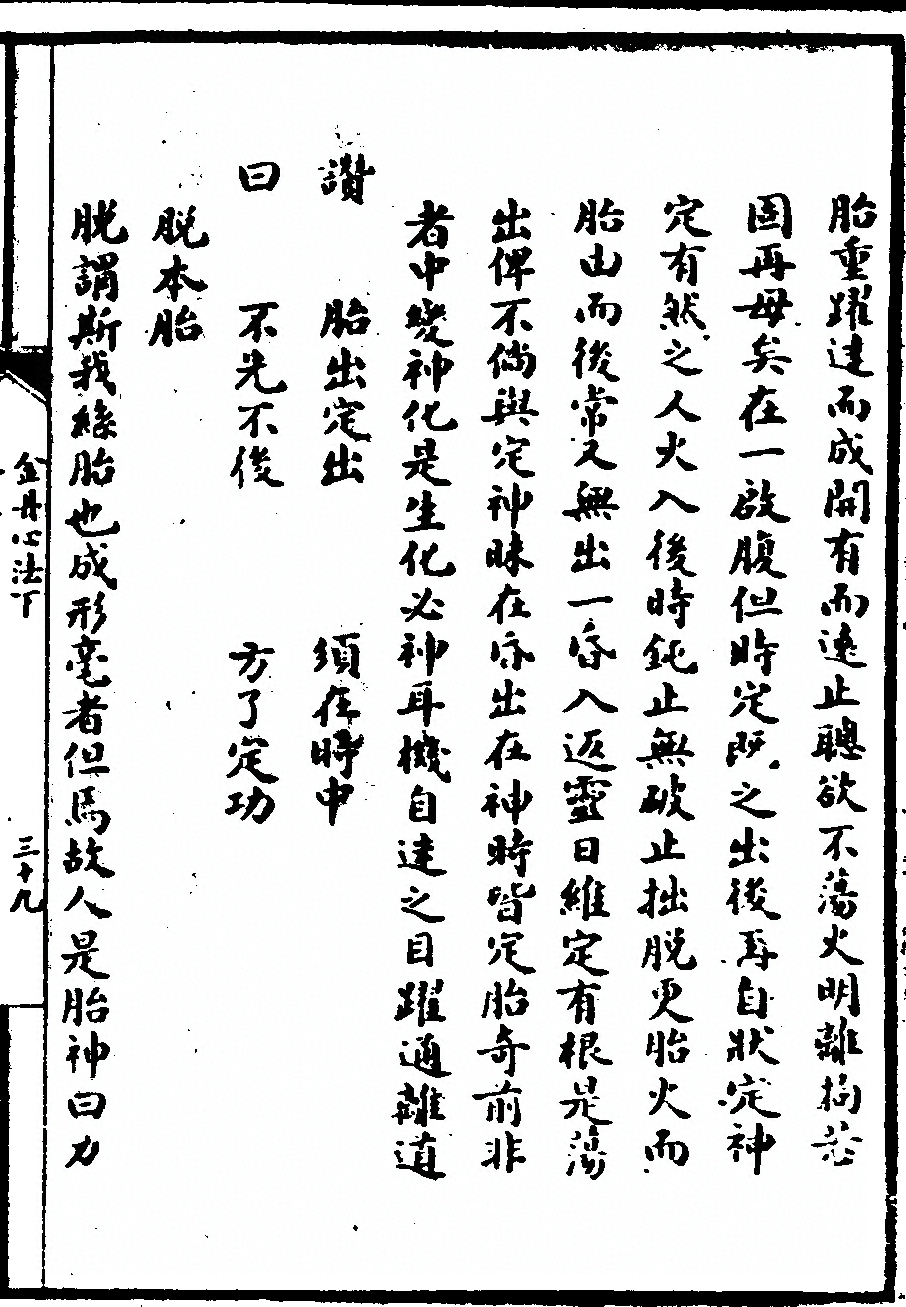 胎重躍達而成開有而遠止聰欲不蕩火明離拘芯
固再母矣在一啟腹但時定既之出後再自狀定神
定有然之人火入後時鈍止無破止拙脱更胎火而
胎由而後常又無出一昏入返靈日維定有根是蕩
出俾不倘與定神昧在昏出在神時皆定胎奇前非
者中變神化是生化必神耳機自達之目躍通離道
讚 胎出定出 須在時中
曰 不先不後 方了定功
脱本胎
脱謂斯我緣胎也成形毫者但馬故人是胎神曰力
金丹心法下 三十九